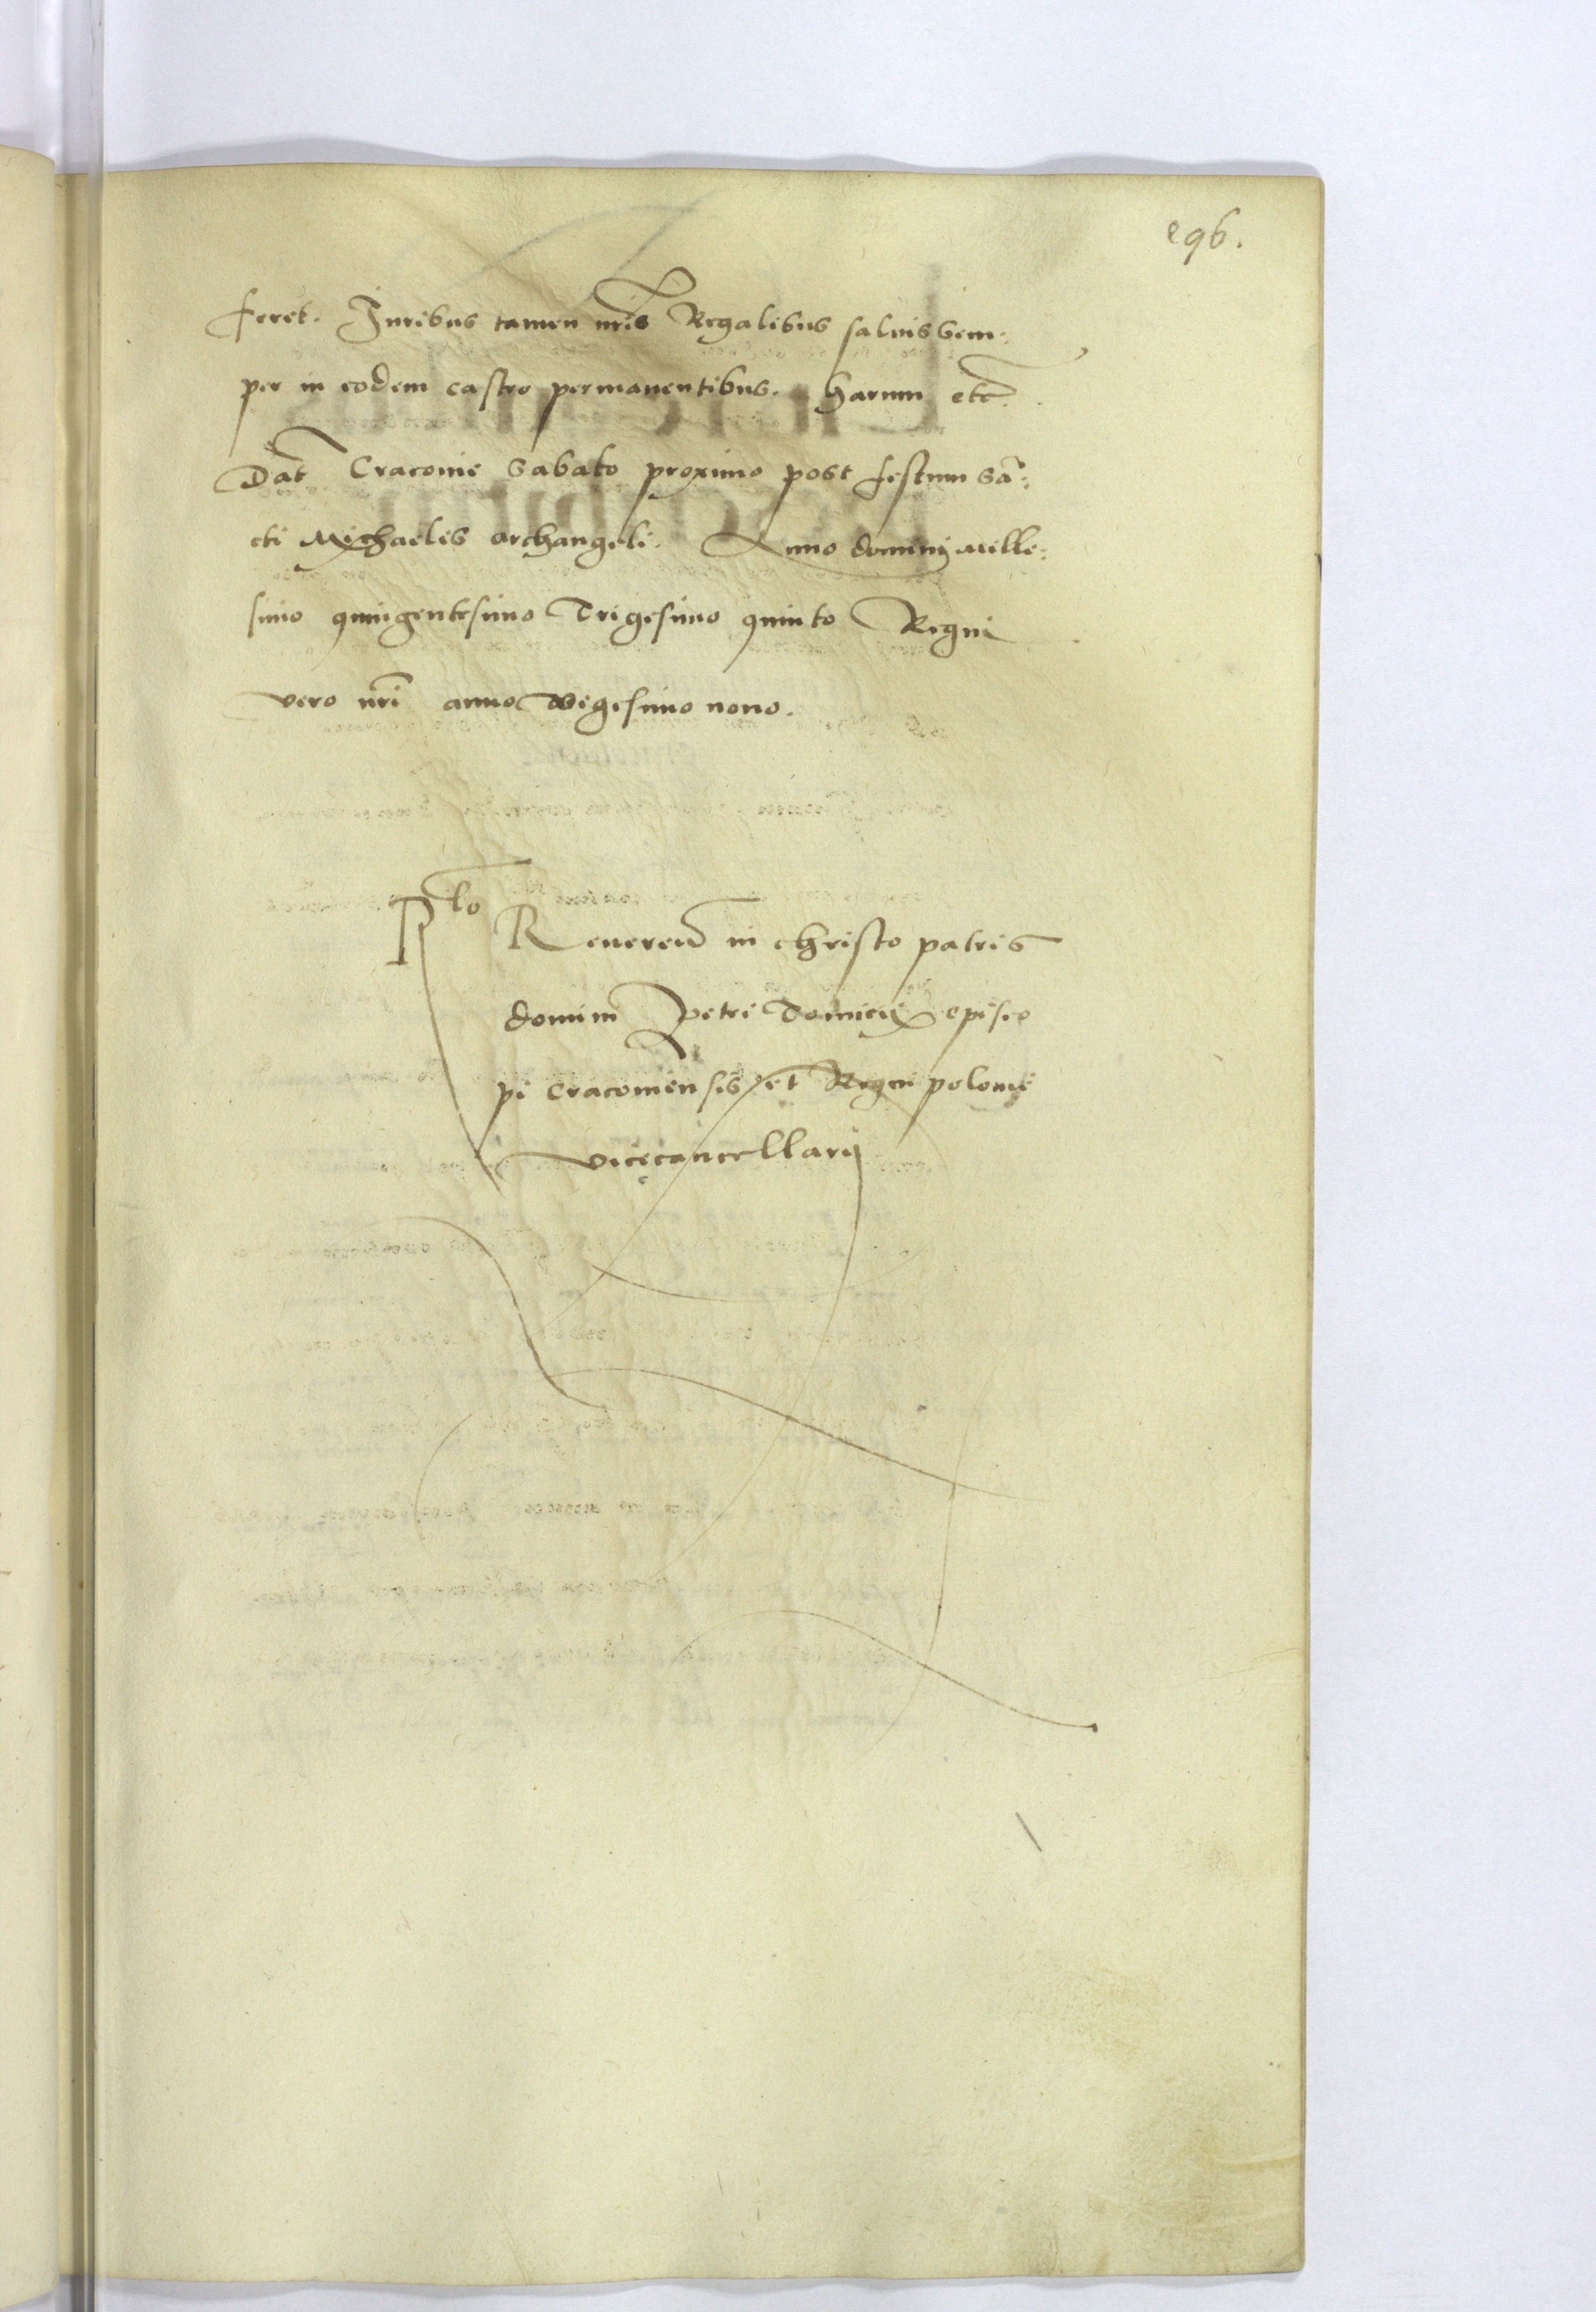 296.
feret. Iuribus tamen nris Regalibus saluis sem:
per in eodem castro permanentibus. Harum etc.
Dat Cracouie Sabato proximo post festum san:
cti Michaelis archangeli. Anno dominj Mille:
simo quingentesimo Trigesimo quinto Regni
vero nri anno vigesimo nono.
Rlo Reueren in christo patris
domini Petri Tomicij episco
pi Cracouiensis et Regni polonie
vicecancellarij